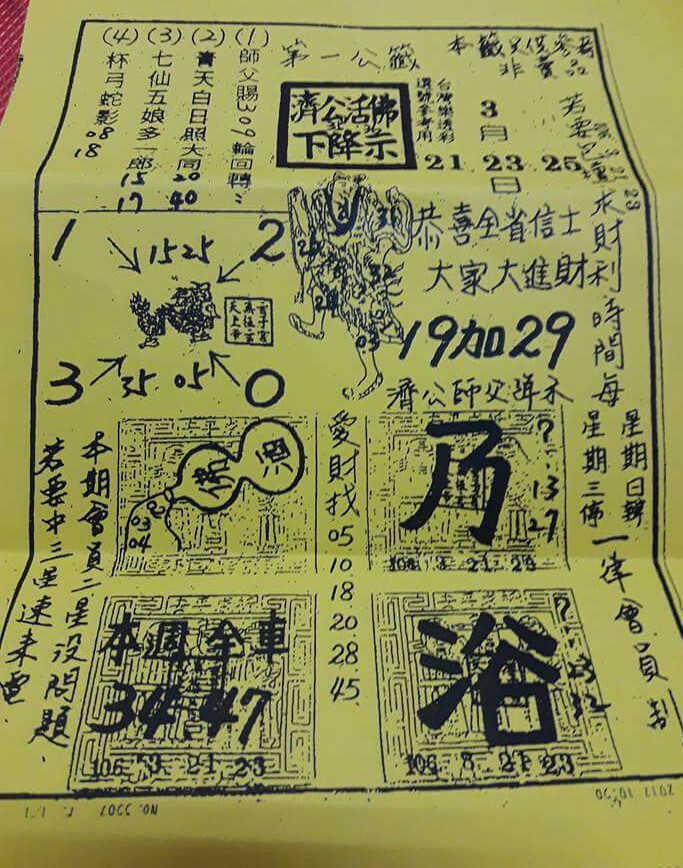 第一公籤
本籤只供參考
非賣品
(1)師父賜309輪回轉
(2)青天白日照大同
20
40
(3)七仙五娘多一郎
15
17
(4)杯弓蛇影
08
18
濟公活佛
下降示
台灣樂透彩
選號參考用
3月
21 23 25日
恭喜全省信士
大家大進財
19加29
濟公師父降示
求財利時間每
星期日轉
星期三佛
一律會員
1 2
15 25
3 0
35 05
愛財找
05
10
18
20
28
45
03
04
乃
?
13
27
本週全車
34 47
106 3 21 23
浴
?
23
32
106 3 21 23
本期會員二星沒問題
若要中三星速來電
NO. 3907 P. 1/1